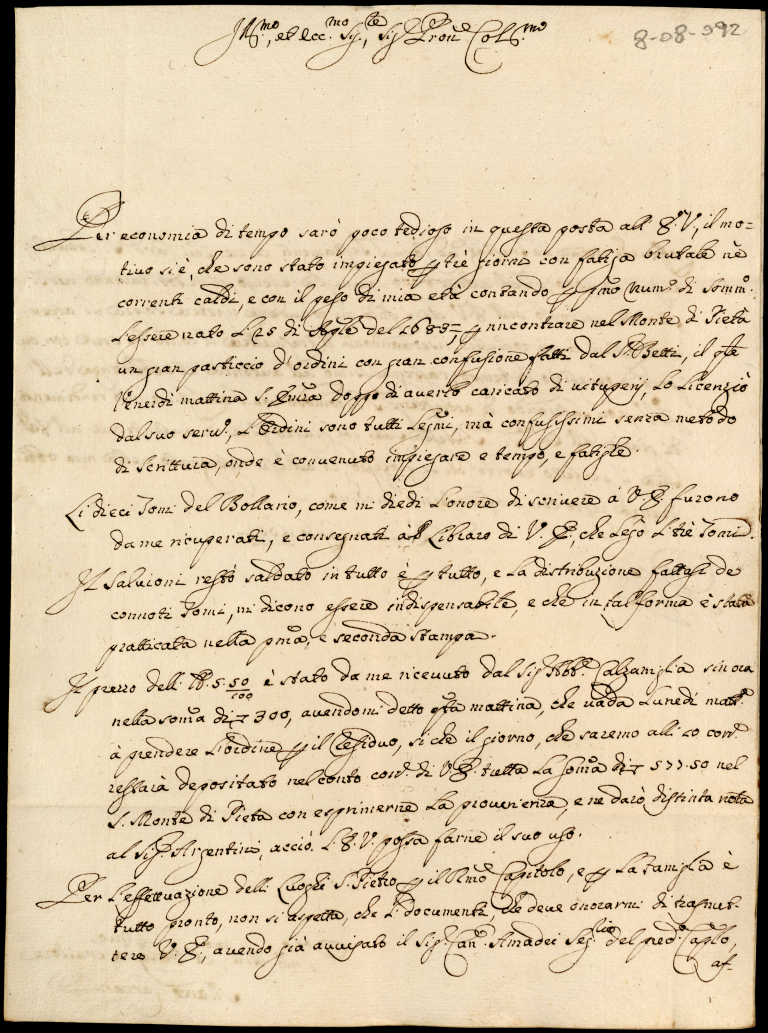 8-08-092
Ill.mo, et Ecc.mo Sig.re, Sig.r Pron.e Col.mo
Per economia di tempo sarò poco tedioso in questa posta all' E. V., il mo=
tivo si è, che sono stato impiegato p tre giorni con fatiga brutale nè
correnti caldi, e con il peso di mia età contando p p.mo num.o di somm.o
l'essere nato L 25 di Aple del 1685, p rincontrare nel Monte di Pietà
un gran pasticcio d'ordini con gran confusione fatti dal S.r Betti, il qle
Venerdi mattina S. Em.za doppo di averlo caricato di vituperij, Lo Licenziò
dal suo serv.o, L'Ordini sono tutti Leg.mi, mà confusissimi senza metodo
di Scrittura, onde è convenuto impiegare e tempo, e fatighe.
Li dieci Tomi del Bollario, come mi diedi L'onore di scrivere à V. E. furono
da me ricuperati, e consegnati al Libraro di V. E., che Legò L trè Tomi.
Il Salvioni restò saldato in tutto è p tutto, e La distribuzione fattasi de
connoti Tomi, mi dicono essere indispensabile, e che in tal forma è stata
pratticata nella p.ma, e seconda stampa.
Il prezzo dell 5. 50/100 è stato da me ricevuto dal Sig.r Abb.e Calzamiglia sin ora
nella som̃a di 300, avendomi detto q.sta mattina, che vada Lunedi matt.a
à prendere L'ordine p il residuo, si che il giorno, che saremo alli 10 corr.e
resterà depositato nel conto corr.e di V. E. tutta La som̃a di 577.50 nel
S. Monte di Pietà con esprimerne La provenienza, e ne darò distinta nota
al Sig.r Argentino, acciò L'E. V. possa farne il suo uso.
Per L'effettuazione delli Luoghi S. Pietro p il R.mo Capitolo, e p La Famiglia è
tutto pronto, non si aspetta, che L documenti, che deve onorarmi di trasmet-
tere V. E., avendo già avvisato il Sig.r Can.co Amadei Seg.rio del pred.o Caplo,
af-